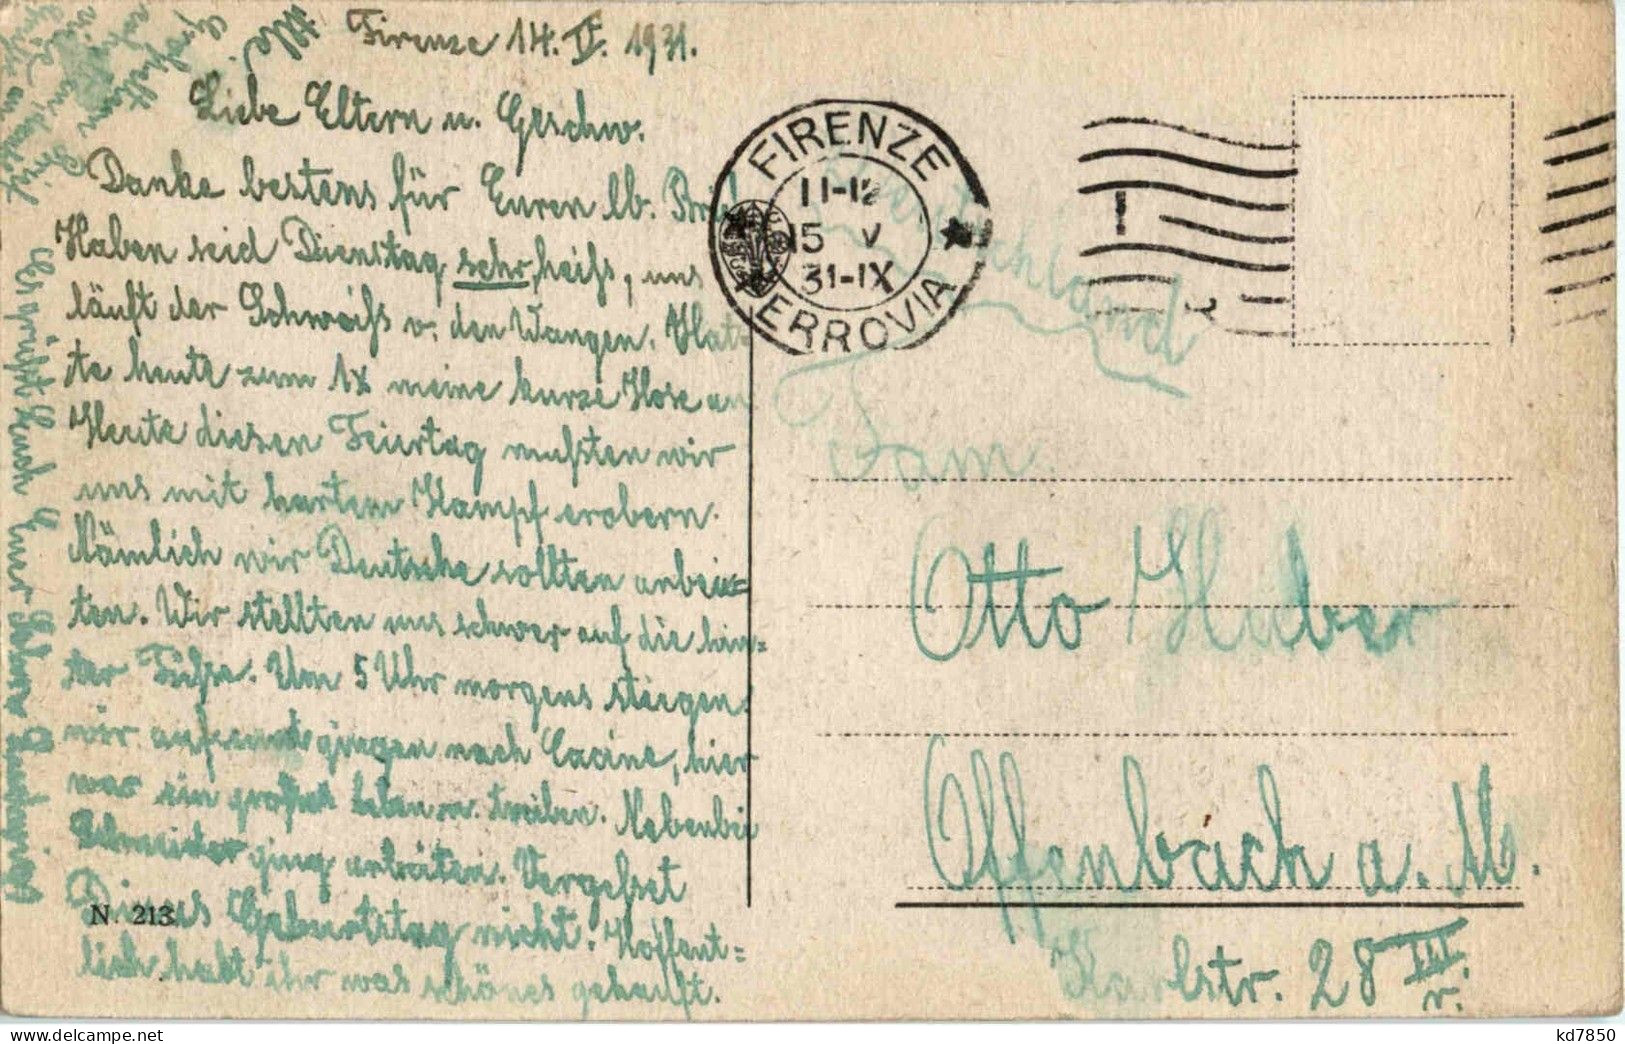 Firenze 14. V. 1931.
Liebe Eltern u. Geschw.
Danke bestens für Euren lb. Brief
Haben seid Dienstag sehr heiß, uns
läuft der Schweiß v. den Wangen. Hat-
te heute zum 1x meine kurze Hose an
Heute diesen Feiertag mußten wir
uns mit hartem Kampf erobern.
Nämlich wir Deutsche sollten arbei=
ten. Wir stellten uns schwer auf die hin=
ter Füße. Um 5 Uhr morgens stiegen
wir auf und gingen nach Cacine, hier
war ein großes leben u. treiben. Nebenbei
Schneider ging arbeiten. Vergeßet
Dines Geburtstag nicht. Hoffent=
lich habt ihr was schönes gekauft.
Es grüßt Euch Euer Sohn
viele
N. 213
FIRENZE
11-12
15 V
31-IX
FERROVIA
Deutschland
Fam.
Otto Haber
Offenbach a. M.
Karlstr. 28 III
r.
kd7850